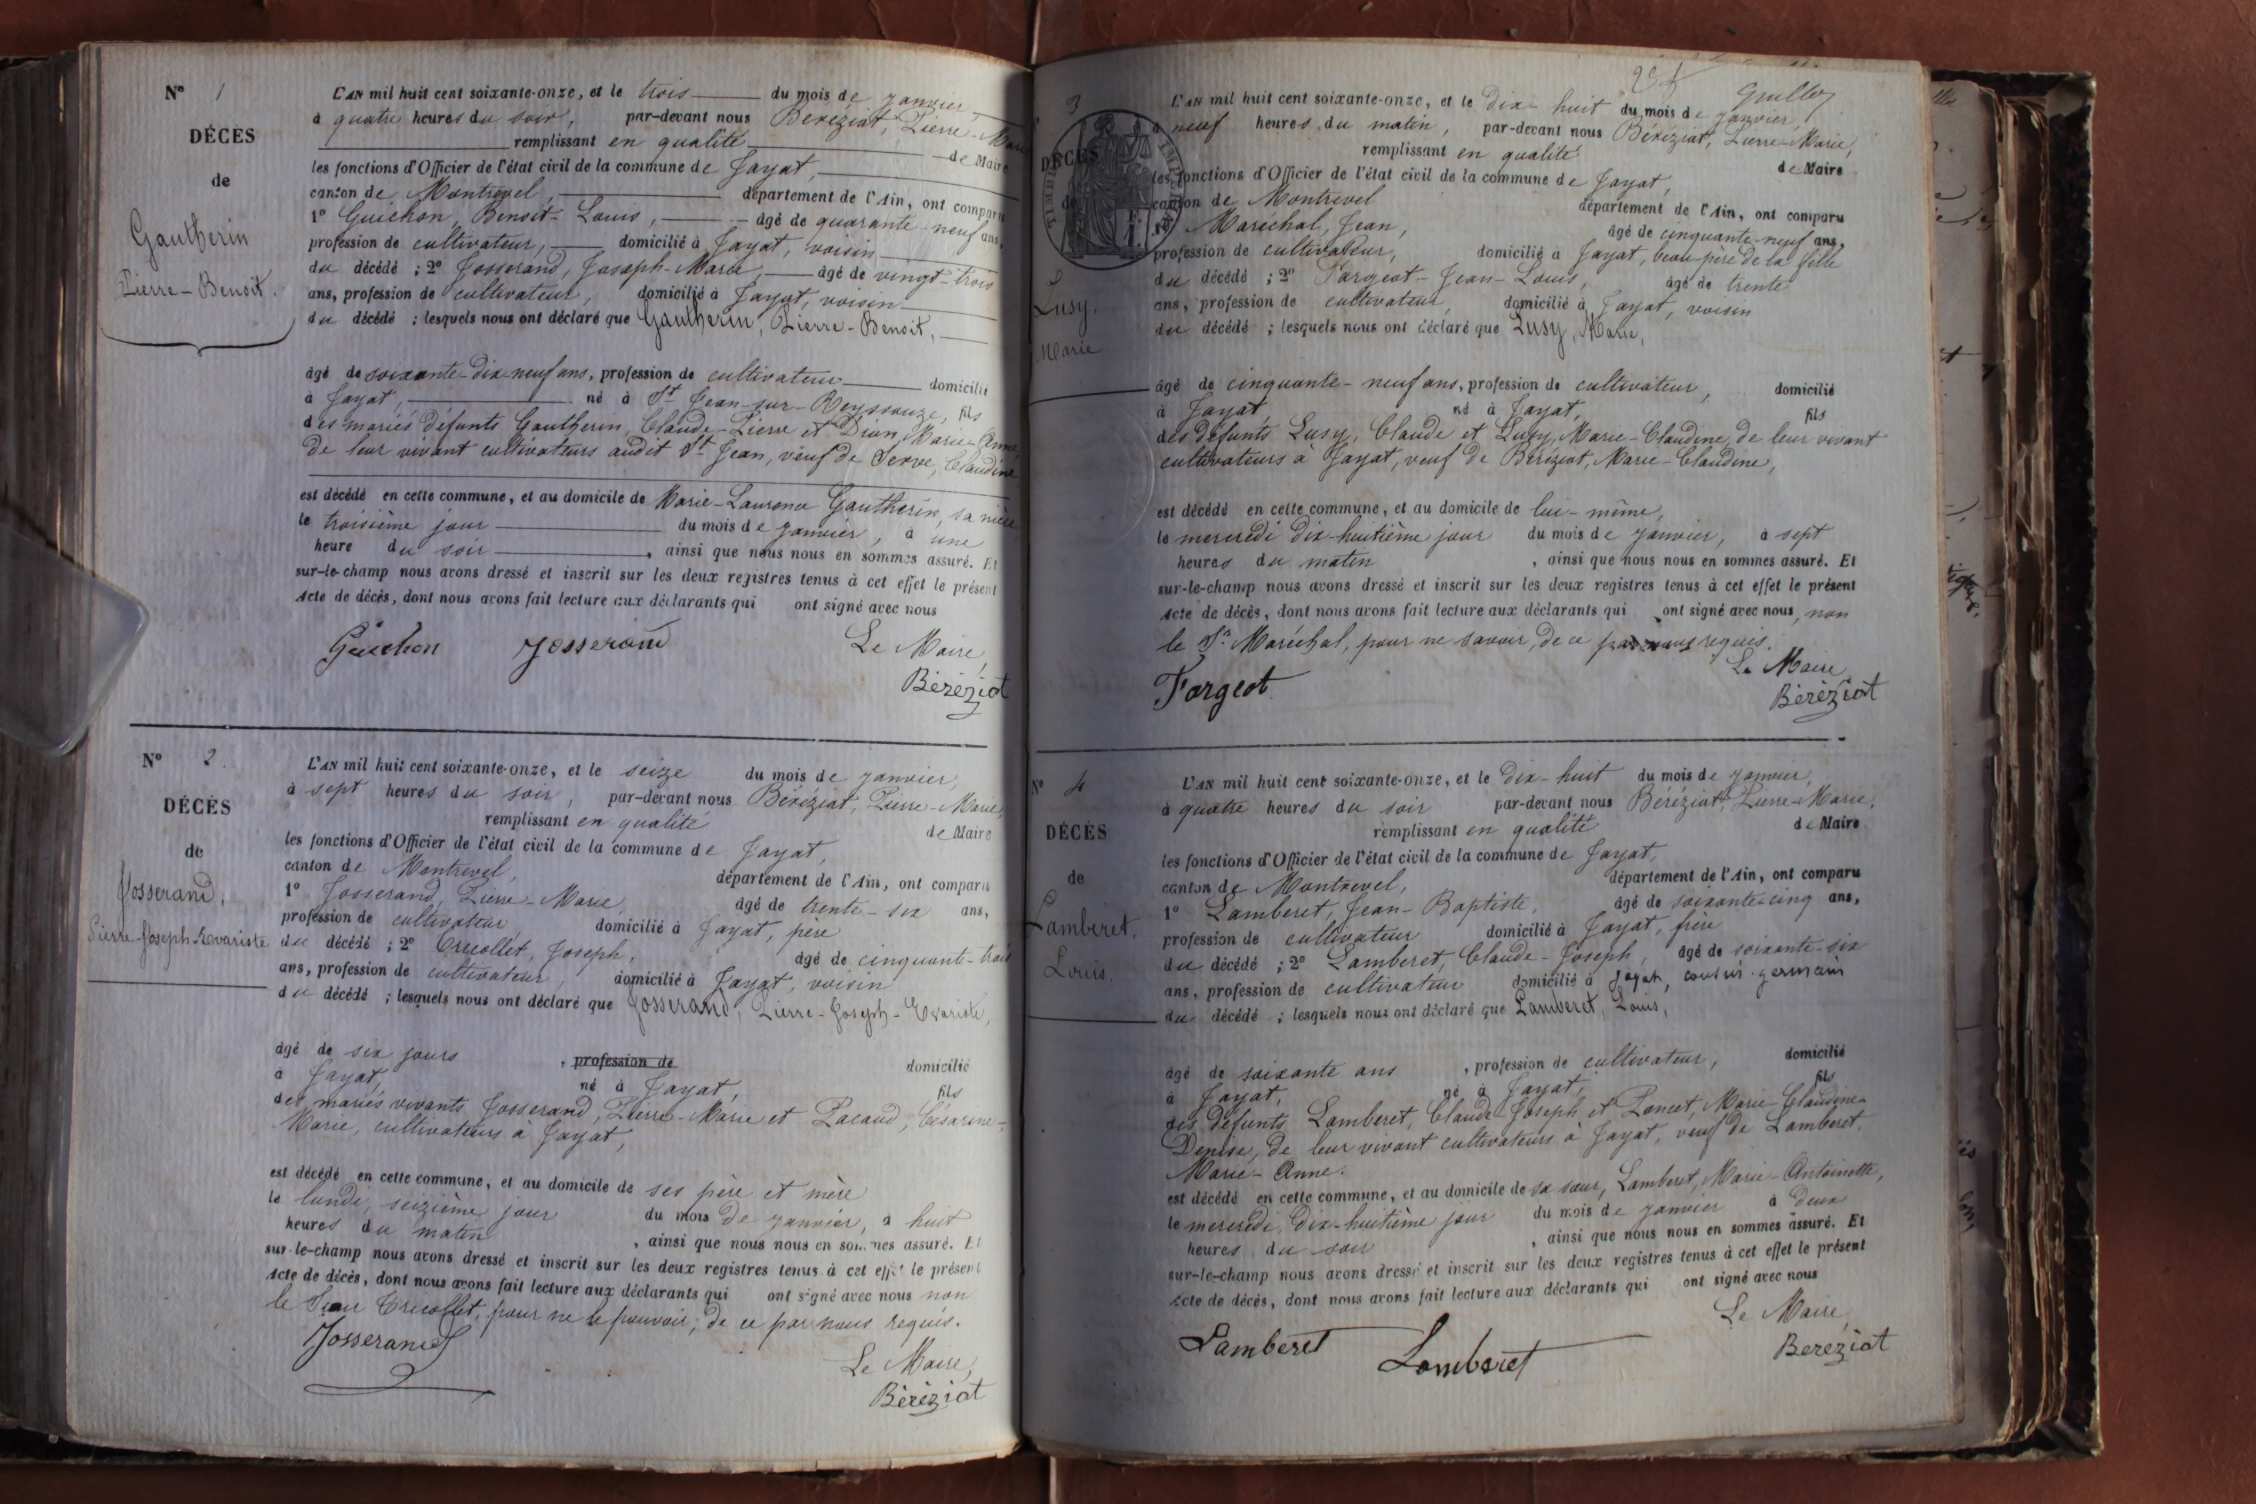 N° 1
DÉCÈS
de
Gautherin
Pierre-Benoit.
L'AN mil huit cent soixante-onze, et le trois du mois de janvier
à quatre heures du soir, par-devant nous Béréziat, Pierre-Marie
remplissant en qualité de Maire
les fonctions d'Officier de l'état civil de la commune de Jayat,
canton de Montrevel, département de l'Ain, ont comparu
1° Guichon, Benoit-Louis, âgé de quarante-neuf ans,
profession de cultivateur, domicilié à Jayat, voisin
du décédé ; 2° Josserand, Joseph-Marie, âgé de vingt-trois
ans, profession de cultivateur, domicilié à Jayat, voisin
du décédé ; lesquels nous ont déclaré que Gautherin, Pierre-Benoit,
âgé de soixante-dix-neuf ans, profession de cultivateur domicilié
à Jayat, né à St Jean-sur-Reyssouze, fils
des mariés défunts Gautherin, Claude-Pierre et Dion, Marie-Anne,
de leur vivant cultivateurs audit St Jean, veuf de Serve, Claudine
est décédé en cette commune, et au domicile de Marie-Laurence Gautherin, sa nièce
le troisième jour du mois de janvier, à une
heure du soir, ainsi que nous nous en sommes assuré. Et
sur-le-champ nous avons dressé et inscrit sur les deux registres tenus à cet effet le présent
acte de décès, dont nous avons fait lecture aux déclarants qui ont signé avec nous
Guichon Josserand Le Maire,
Béréziat
N° 2.
DÉCÈS
de
Josserand,
Pierre-Joseph-Evariste
L'AN mil huit cent soixante-onze, et le seize du mois de janvier,
à sept heures du soir, par-devant nous Béréziat, Pierre-Marie,
remplissant en qualité de Maire
les fonctions d'Officier de l'état civil de la commune de Jayat,
canton de Montrevel, département de l'Ain, ont comparu
1° Josserand, Pierre-Marie, âgé de trente-six ans,
profession de cultivateur, domicilié à Jayat, père
du décédé ; 2° Crécollet, Joseph, âgé de cinquante-trois
ans, profession de cultivateur, domicilié à Jayat, voisin
du décédé ; lesquels nous ont déclaré que Josserand, Pierre-Joseph-Evariste,
âgé de six jours, profession de domicilié
à Jayat, né à Jayat, fils
des mariés vivants Josserand, Pierre-Marie et Pacaud, Césarine-
Marie, cultivateurs à Jayat,
est décédé en cette commune, et au domicile de ses père et mère
le lundi, seizième jour du mois de janvier, à huit
heures du matin, ainsi que nous nous en sommes assuré. Et
sur-le-champ nous avons dressé et inscrit sur les deux registres tenus à cet effet le présent
acte de décès, dont nous avons fait lecture aux déclarants qui ont signé avec nous non
le Sieur Crécollet, pour ne le pouvoir, de ce par nous requis.
Josserand
Le Maire,
Béréziat
3
DÉCÈS
de
Lusy.
Marie
L'AN mil huit cent soixante-onze, et le dix-huit du mois de janvier,
à neuf heures du matin, par-devant nous Béréziat, Pierre-Marie,
remplissant en qualité de Maire
les fonctions d'Officier de l'état civil de la commune de Jayat,
canton de Montrevel département de l'Ain, ont comparu
1° Maréchal, Jean, âgé de cinquante-neuf ans,
profession de cultivateur, domicilié à Jayat, beau-père de la fille
du décédé ; 2° Fargeot-Jean-Louis, âgé de trente
ans, profession de cultivateur, domicilié à Jayat, voisin
du décédé ; lesquels nous ont déclaré que Lusy, Marie,
âgé de cinquante-neuf ans, profession de cultivateur, domicilié
à Jayat, né à Jayat, fils
des défunts Lusy, Claude et Lusy, Marie-Claudine, de leur vivant
cultivateurs à Jayat, veuf de Béréziat, Marie-Claudine,
est décédé en cette commune, et au domicile de lui-même,
le mercredi dix-huitième jour du mois de janvier, à sept
heures du matin, ainsi que nous nous en sommes assuré. Et
sur-le-champ nous avons dressé et inscrit sur les deux registres tenus à cet effet le présent
acte de décès, dont nous avons fait lecture aux déclarants qui ont signé avec nous, non
le Sr Maréchal, pour ne savoir, de ce par nous requis.
Le Maire
Fargeot Béréziat
N° 4
DÉCÈS
de
Lamberet.
Louis.
L'AN mil huit cent soixante-onze, et le dix-huit du mois de janvier,
à quatre heures du soir par-devant nous Béréziat, Pierre-Marie,
remplissant en qualité de Maire
les fonctions d'Officier de l'état civil de la commune de Jayat,
canton de Montrevel, département de l'Ain, ont comparu
1° Lamberet, Jean-Baptiste, âgé de soixante-cinq ans,
profession de cultivateur domicilié à Jayat, frère
du décédé ; 2° Lamberet, Claude-Joseph, âgé de soixante-six
ans, profession de cultivateur domicilié à Jayat, cousin-germain
du décédé ; lesquels nous ont déclaré que Lamberet, Louis,
âgé de soixante ans, profession de cultivateur, domicilié
à Jayat, né à Jayat, fils
des défunts Lamberet, Claude-Joseph et Poncet, Marie-Claudine-
Denise, de leur vivant cultivateurs à Jayat, veuf de Lamberet,
Marie-Anne.
est décédé en cette commune, et au domicile de sa sœur, Lamberet, Marie-Antoinette,
le mercredi, dix-huitième jour du mois de janvier à deux
heures du soir, ainsi que nous nous en sommes assuré. Et
sur-le-champ nous avons dressé et inscrit sur les deux registres tenus à cet effet le présent
acte de décès, dont nous avons fait lecture aux déclarants qui ont signé avec nous
Le Maire,
Lamberet Lamberet Béréziat